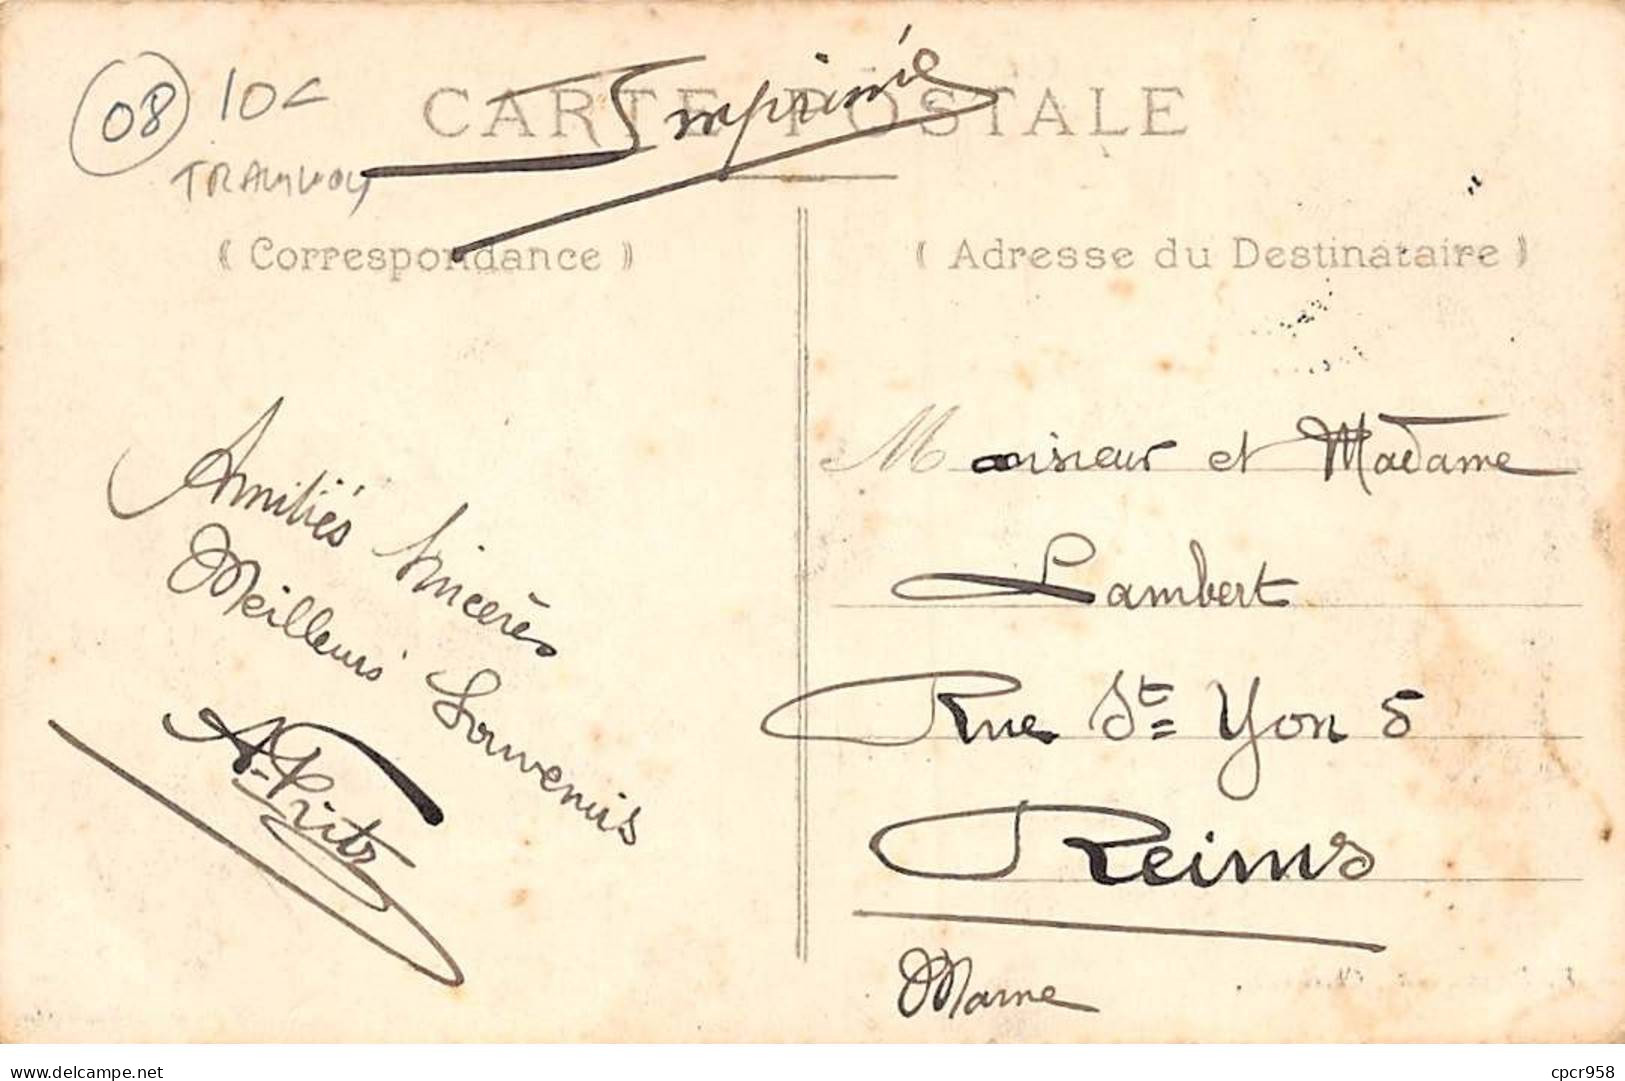 08 10c
TRAMWAY
CARTE POSTALE
Imprimé
( Correspondance )
( Adresse du Destinataire )
Amitiés Sincères
Meilleurs Souvenirs
A. Fritz
Monsieur et Madame
Lambert
Rue St Yon 5
Reims
Marne
cpcr958